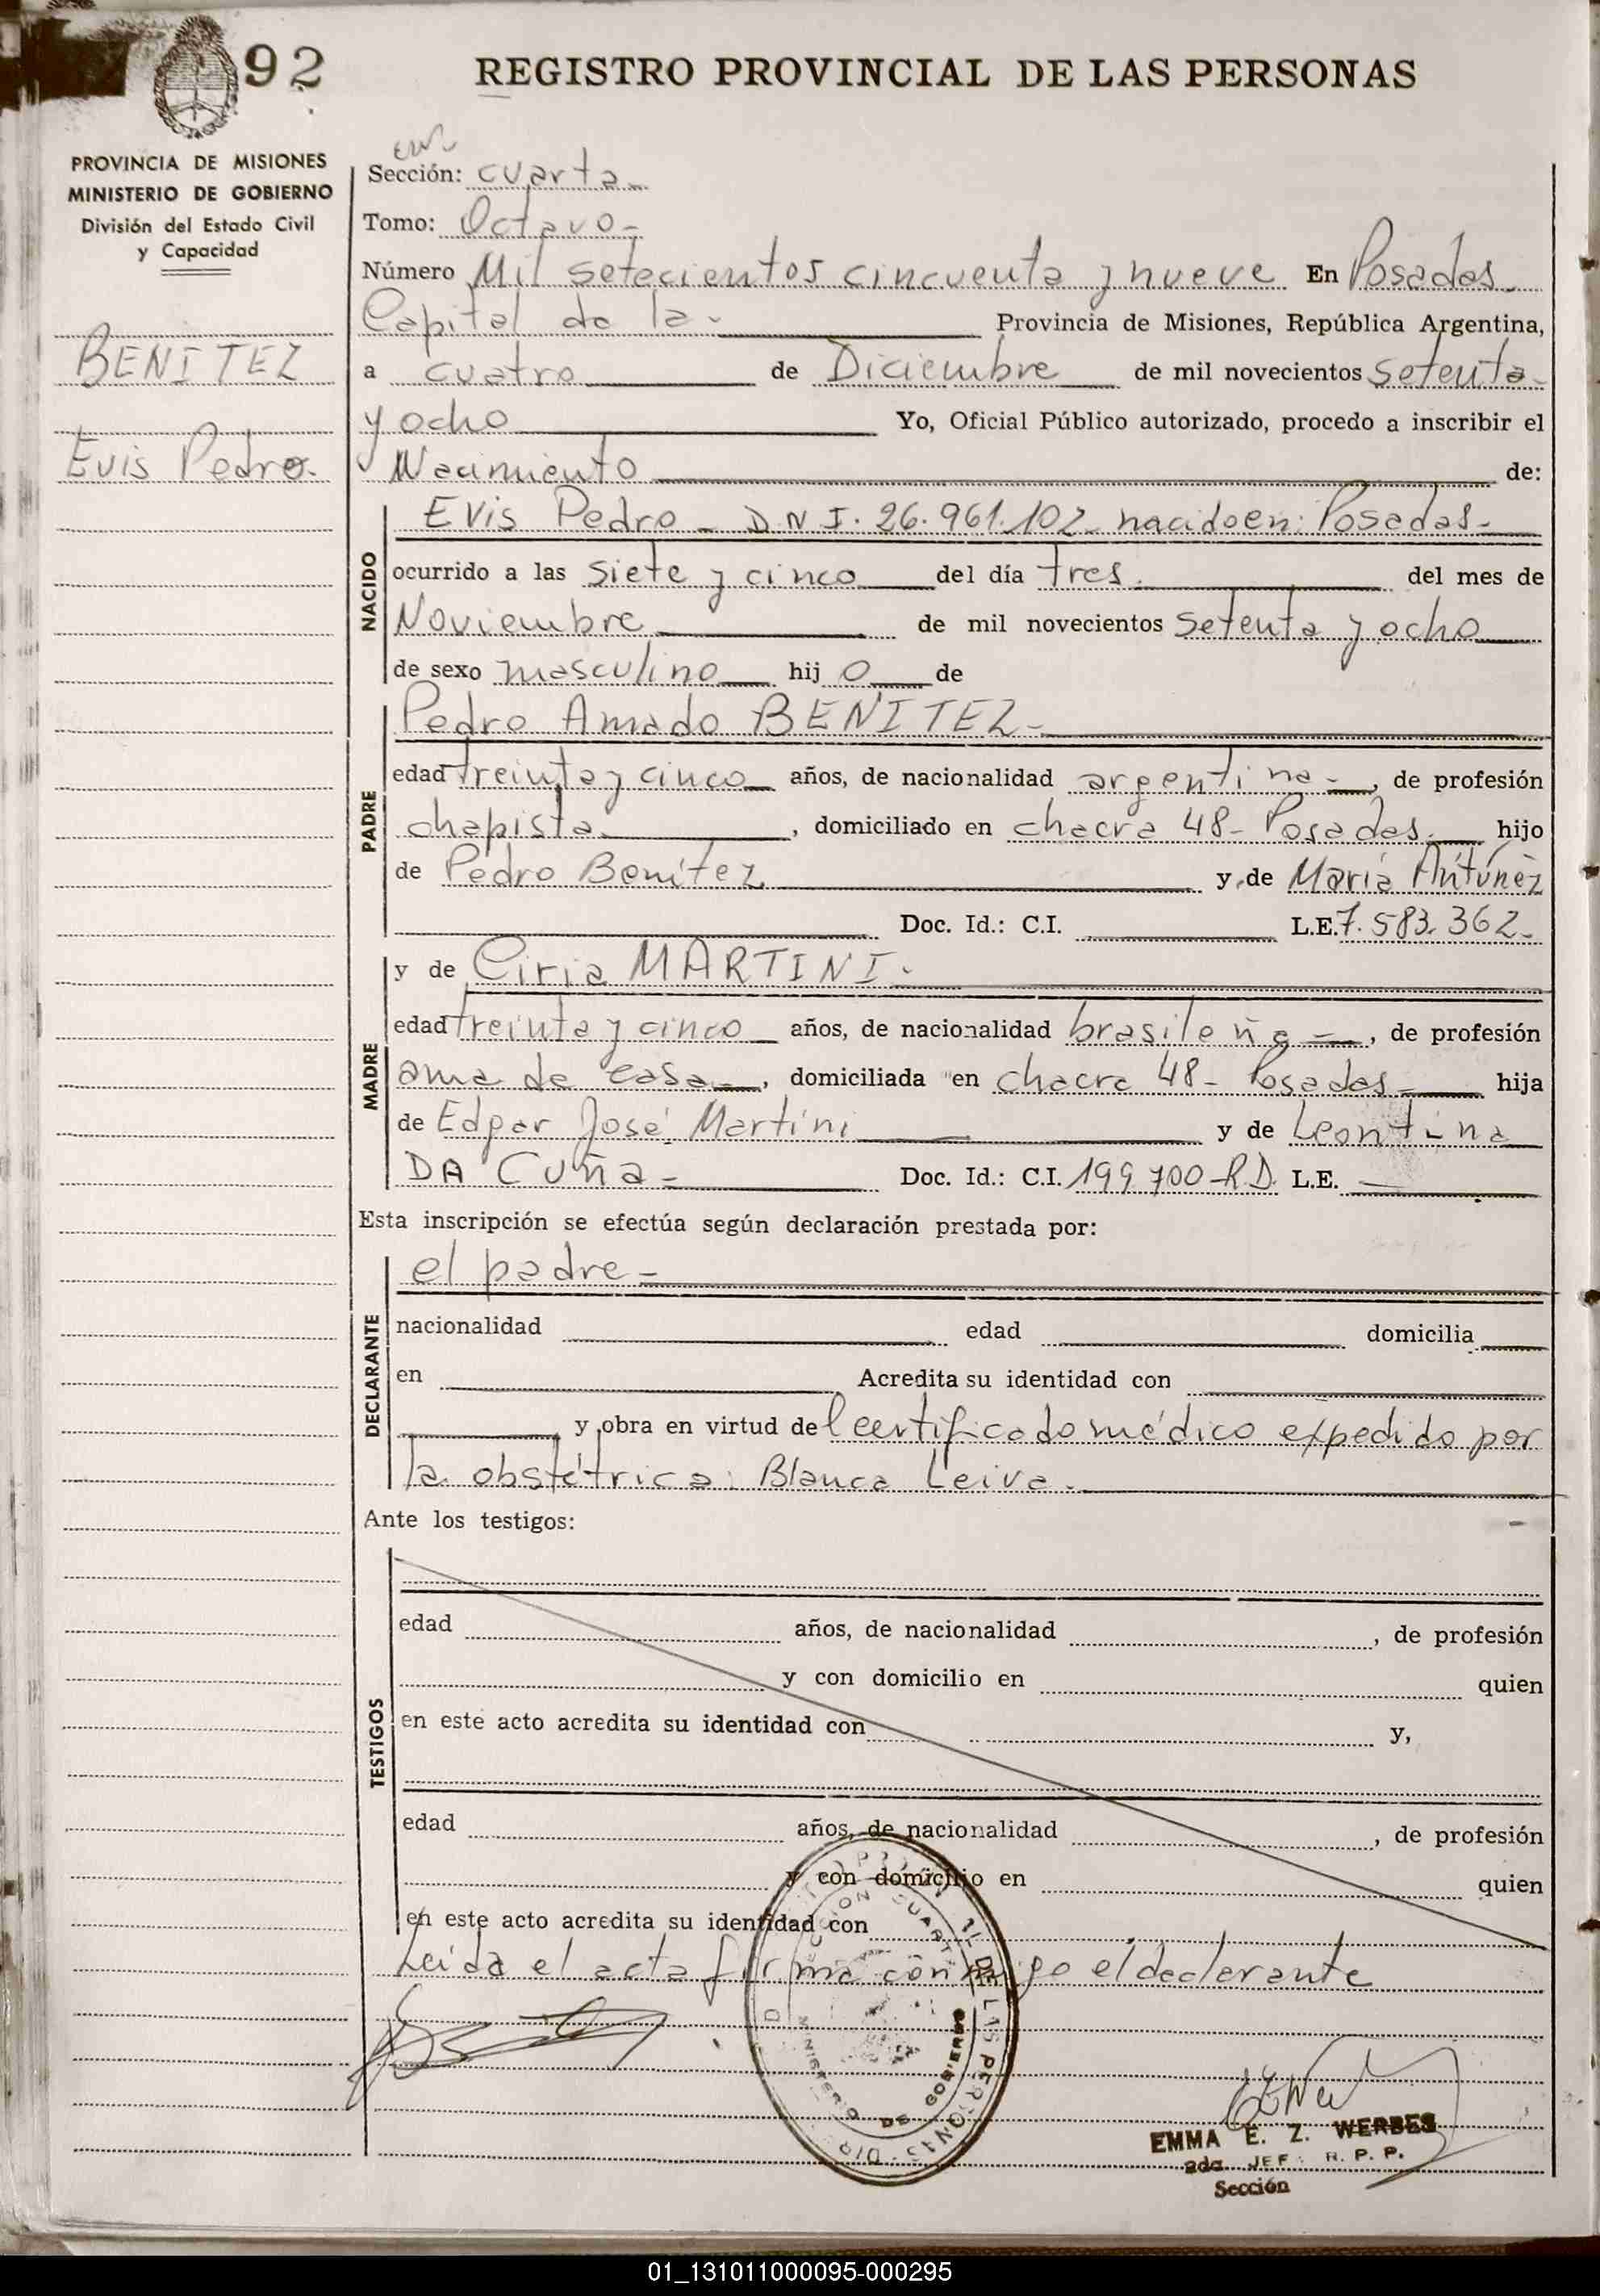 92
REGISTRO PROVINCIAL DE LAS PERSONAS
PROVINCIA DE MISIONES
MINISTERIO DE GOBIERNO
División del Estado Civil
y Capacidad
BENITEZ
Evis Pedro.
Sección: cuarta
Tomo: Octavo-
Número Mil setecientos cincuenta y nueve En Posadas.
Capital de la- Provincia de Misiones, República Argentina,
a cuatro de Diciembre de mil novecientos setenta
y ocho Yo, Oficial Público autorizado, procedo a inscribir el
Nacimiento de:
NACIDO
Evis Pedro - D N I. 26.961.102- nacido en: Posadas-
ocurrido a las siete y cinco del día tres. del mes de
Noviembre de mil novecientos setenta y ocho
de sexo masculino hij o de
PADRE
Pedro Amado BENITEZ-
edad treinta y cinco años, de nacionalidad argentina-, de profesión
chapista, domiciliado en chacra 48- Posadas. hijo
de Pedro Benítez y de María Antúnez
Doc. Id.: C.I. L.E. 7.583.362-
MADRE
y de Ciria MARTINI.
edad treinta y cinco años, de nacionalidad brasileña-, de profesión
ama de casa, domiciliada en chacra 48- Posadas- hija
de Edgar José Martini y de Leontina
DA Cuña- Doc. Id.: C.I. 199.700-R.D. L.E.
Esta inscripción se efectúa según declaración prestada por:
DECLARANTE
el padre-
nacionalidad edad domicilia
en Acredita su identidad con
y obra en virtud del certificado médico expedido por
la obstétrica: Blanca Leiva.
Ante los testigos:
TESTIGOS
edad años, de nacionalidad , de profesión
y con domicilio en quien
en este acto acredita su identidad con y,
edad años, de nacionalidad , de profesión
y con domicilio en quien
en este acto acredita su identidad con
Leída el acta firma conmigo el declarante
DE LAS PERSONAS
MINISTERIO DE GOBIERNO
EMMA E. Z. WERBES
2da. JEF R. P. P.
Sección
01_131011000095-000295